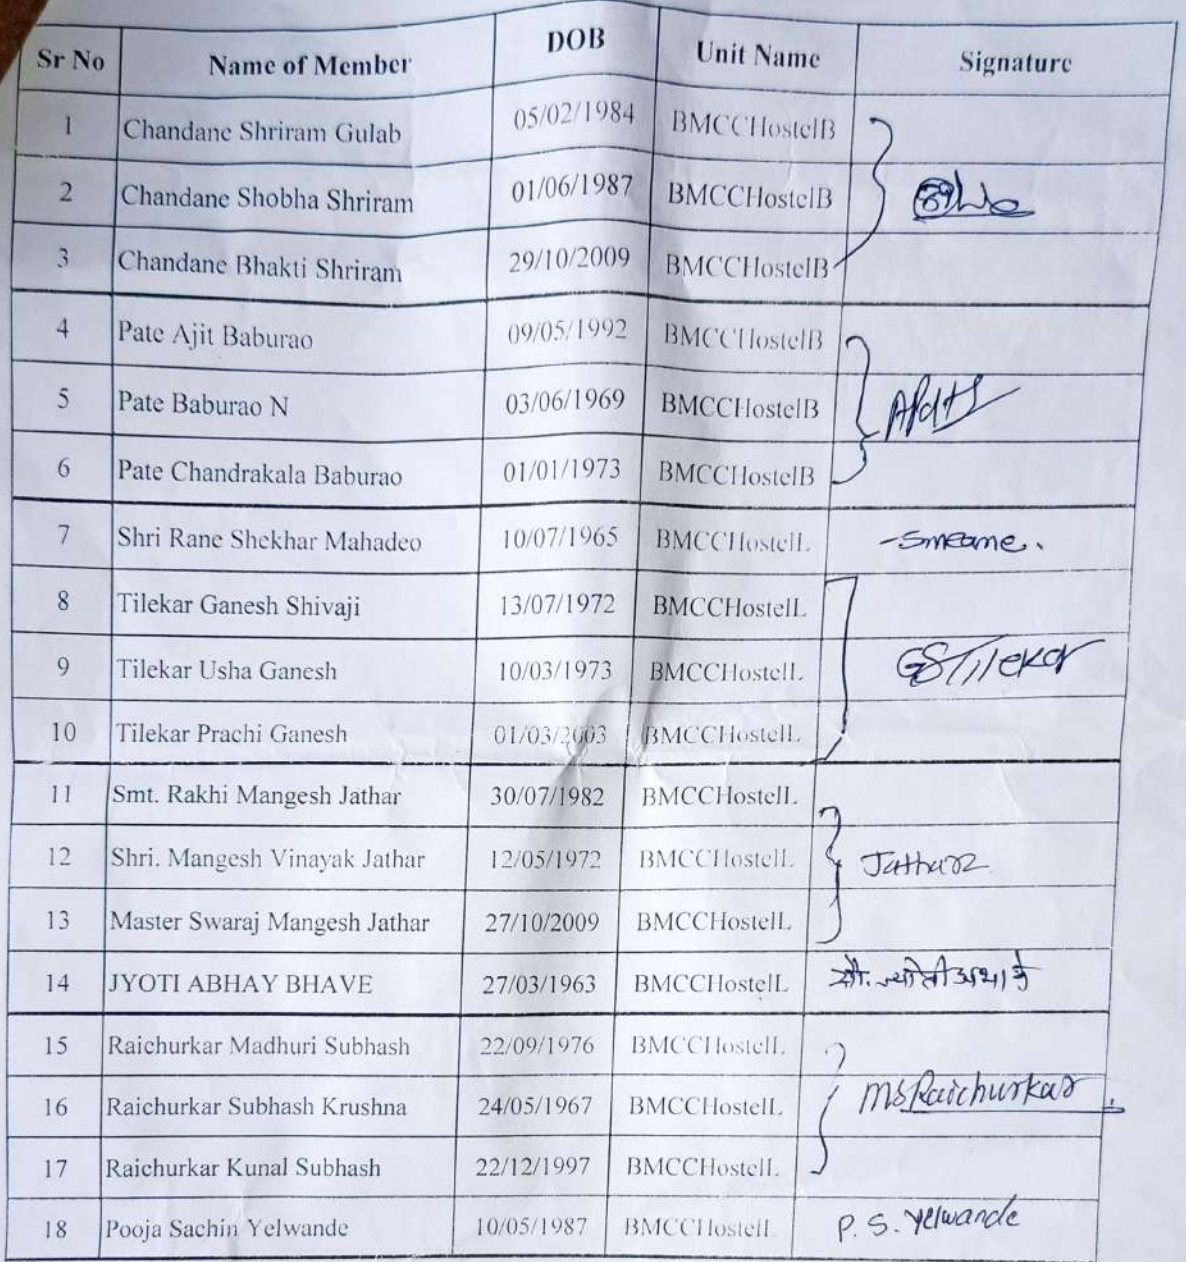 Sr No Name of Member DOB Unit Name Signature
1 Chandane Shriram Gulab 05/02/1984 BMCCHostelB
2 Chandane Shobha Shriram 01/06/1987 BMCCHostelB
3 Chandane Bhakti Shriram 29/10/2009 BMCCHostelB
4 Pate Ajit Baburao 09/05/1992 BMCCHostelB
5 Pate Baburao N 03/06/1969 BMCCHostelB
6 Pate Chandrakala Baburao 01/01/1973 BMCCHostelB
7 Shri Rane Shekhar Mahadeo 10/07/1965 BMCCHostelL
8 Tilekar Ganesh Shivaji 13/07/1972 BMCCHostelL
9 Tilekar Usha Ganesh 10/03/1973 BMCCHostelL GSTilekar
10 Tilekar Prachi Ganesh 01/03/2003 BMCCHostelL
11 Smt. Rakhi Mangesh Jathar 30/07/1982 BMCCHostelL
12 Shri. Mangesh Vinayak Jathar 12/05/1972 BMCCHostelL Jathar
13 Master Swaraj Mangesh Jathar 27/10/2009 BMCCHostelL
14 JYOTI ABHAY BHAVE 27/03/1963 BMCCHostelL
15 Raichurkar Madhuri Subhash 22/09/1976 BMCCHostelL
16 Raichurkar Subhash Krushna 24/05/1967 BMCCHostelL MSRaichurkar
17 Raichurkar Kunal Subhash 22/12/1997 BMCCHostelL
18 Pooja Sachin Yelwande 10/05/1987 BMCCHostelL P. S. Yelwande